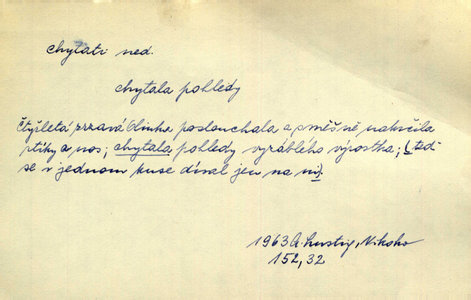 chytati ned.
chytala pohledy
Čtyřletá zrzavá Olinka poslouchala a směšně nakrčila
pihy a nos; chytala pohledy vyzáblého výrostka; (teď
se v jednom kuse díval jen na ni).
1963 A. Lustig, Nikoho
152, 32